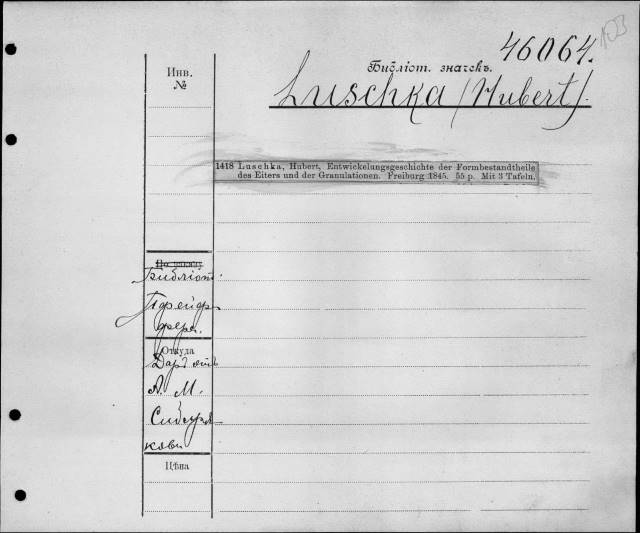 103
46064.
Библіот. значекъ.
Инв.
№
Luschka (Hubert).
1418 Luschka, Hubert, Entwickelungsgeschichte der Formbestandtheile
des Eiters und der Granulationen. Freiburg 1845. 55 p. Mit 3 Tafeln.
Библіот.
Пфейф-
фера.
Откуда
Даръ отъ
А. М.
Сибиря-
кова
Цѣна